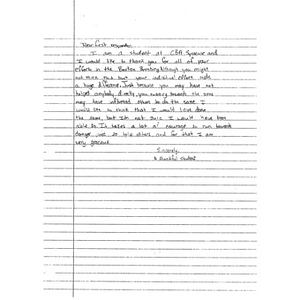 Dear first responder,
I am a student at CBA Syracuse and
I would like to thank you for all of your
efforts in the Boston Bombing. Although you might
not think much but your individual efforts made
a huge difference. Just because you may have not
helped anybody directly, you running towards the scene
may have influenced others to do the same. I
would like to think that I would have done
the same, but I'm not sure I would have been
able to. It takes a lot of courage to run toward
danger just to help others and for that I am
very grateful.
Sincerely,
A thankful student